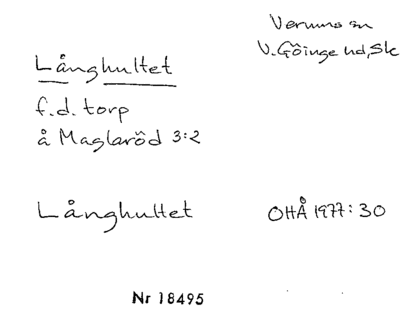 Verums sn
V. Göinge hd, Sk
Långhultet
f.d. torp
å Maglaröd 3:2
Långhultet
OHÅ 1977:30
Nr 18495